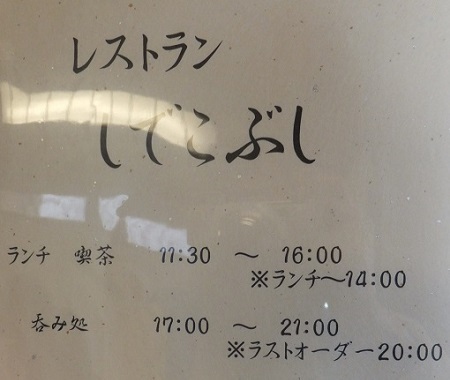 レストラン
しでこぶし
ランチ 喫茶 11:30 ～ 16:00
※ランチ～14:00
呑み処 17:00 ～ 21:00
※ラストオーダー20:00